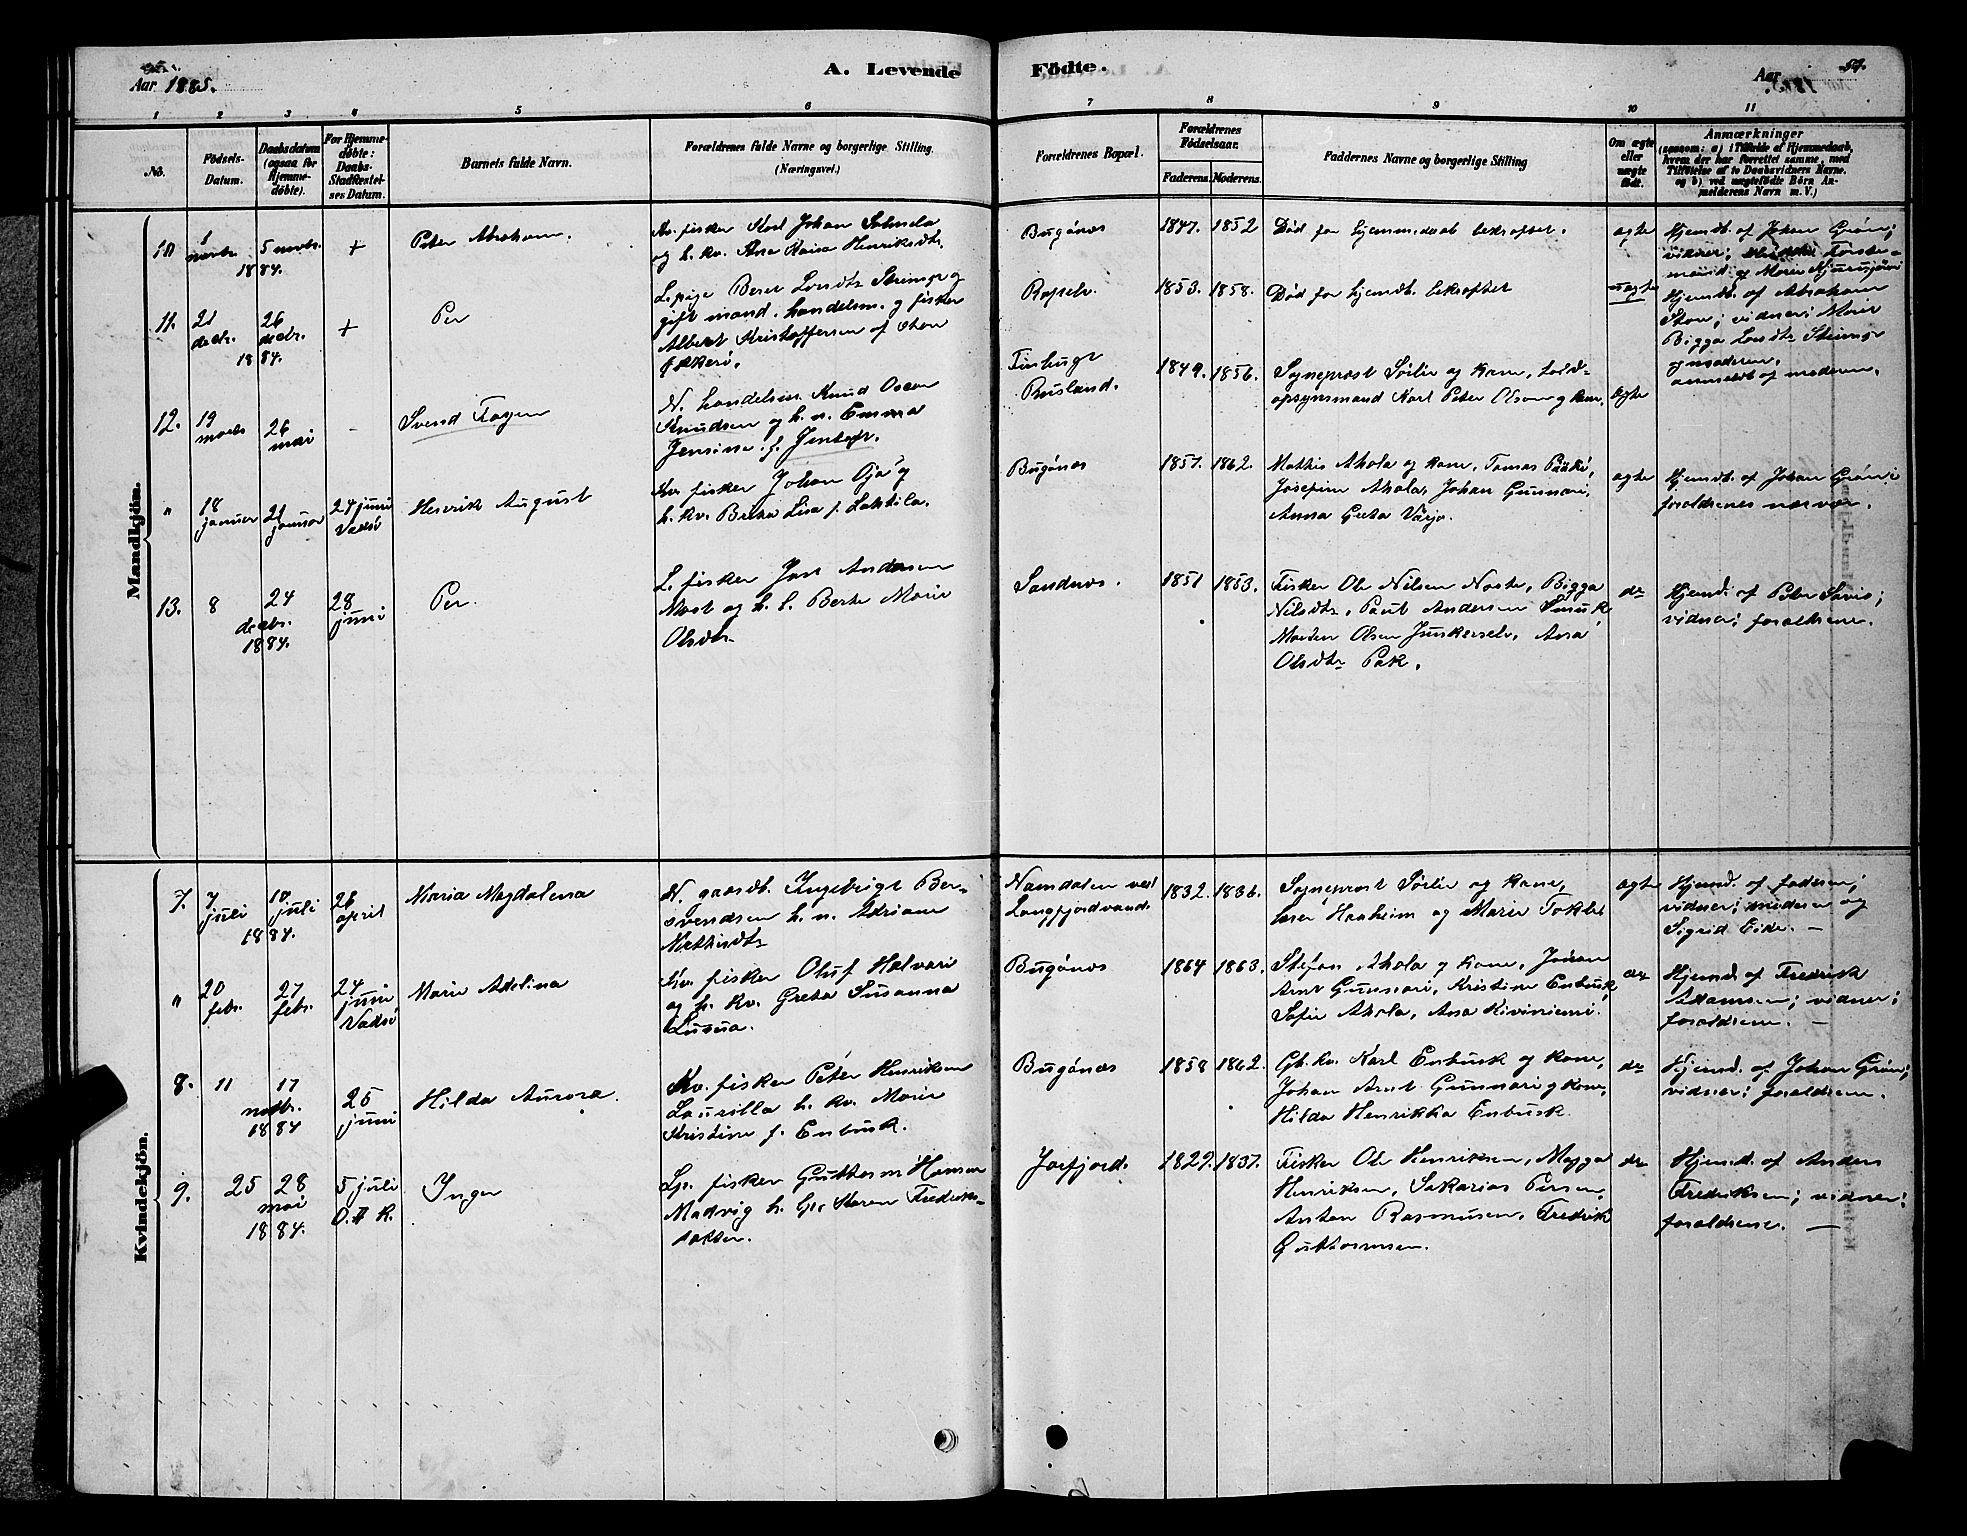 Aar 1885.
A. Levende
Födte.
Aar 1885.
54.
1 2 3 4 5 6 7 8 9 10 11
No.
Födsels-
Datum.
Daabsdatum
(ogsaa for
Hjemme-
döbte).
For Hjemme-
döbte:
Daabs-
Stadfæstel-
ses Datum.
Barnets fulde Navn.
Forældrenes fulde Navne og borgerlige Stilling.
(Næringsvei.)
Forældrenes Bopæl.
Forældrenes
Födselsaar.
Faderens. Moderens.
Faddernes Navne og borgerlige Stilling
Om ægte
eller
uægte
födt.
Anmærkninger
(saasom: a) i Tilfælde af Hjemmedaab,
hvem der har forrettet samme, med
Tilföielse af to Daabsvidners Navne.
og b) ved uægtefödte Börn An-
melderens Navn m. V.)
Mandkjön.
10 1 novbr. 5 novbr. 1884. +
Peter Abraham.
Kv. fisker Karl Johan Salmela
og h. kv. Ana Kaisa Henriksdtr.
Bugönæs
1847. 1852
Död för hjemmedaab bekræftet.
ægte
Hjemdb. af Johan Grön;
vidner; Forste-
mand og Marie
11. 21 decbr. 26 decbr. 1884. +
Per
L. pige Beret Larsdtr
gift mand. handelsm. og fisker
Albert Kristoffersen af
Kjækerö.
Ropelv.
1853. 1858.
Död for hjemdb. bekræftet
uægte
Hjemdb. af Abraham
vidner; Marie
Bigga Larsdtr
og moderen.
anmeldt af moderen.
12. 19 novbr 26 mai -
Svend Fagen
N. handelsm. Knud Oscar
Knudsen og h. n. Emma
Jensine f. Jentoft.
Finbugt
Rusland.
1849. 1856.
Sogneprest Sörlie og kone, told-
opsynsmand Karl Peter Olsen og kone.
ægte
" 18 januar 21 januar 24 juni Vadsö
Henrik August
Kv. fisker Johan Oja og
h. kv. Brita Lisa f. Lahtila.
Bugönæs
1857. 1862.
Mathis Ahola og kone, Tomas
Josefine Ahola, Johan Gunnari,
Anna Greta Varjo.
ægte
Hjemdb. af Johan Grön i
forældrenes nærvær.
13. 8 24 decbr. 1884. 28 juni
Per.
L. fisker Andersen
og h. l. Berte Marie
Olsdtr
Sandnes.
1851 1853.
Fisker Ole Nilsen Noste, Bigga
Nilsdtr, Paul Andersen
Morten Olsen Junkerelv, Ana
Olsdtr Pak.
do
Hjemd. af Peter Savio;
vidner; forældrene.
Kvindekjön.
7. 7 juli 10 juli 1884. 26 april
Maria Magdalena
N. gaardb. Ingebrigt Ber-
svendsen h. n. Adriane
Mathisdtr
Namdalen ved
Langfjordvand.
1832. 1836.
Sogneprest Sörlie og kone,
lærer Haaheim og Marie Tokle
ægte
Hjemd. af faderen;
vidner; moderen og
Sigrid Eide. -
" 20 febr. 27 febr. 24 juni Vadsö
Marie Adelina
Kv. fisker Oluf Halvari
og h. kv. Greta Susanna
Lusua.
Bugönæs
1864 1863.
Stefan Ahola og kone, Johan
Arnt Gunnari, Kristine Enbusk,
Sofie Ahola, Ana Kiviniemi.
do
Hjemd. af Fredrik
Adamsen; vidner;
forældrene. -
8. 11 17 novbr. 1884 25 juni
Hilda Aurora.
Kv. fisker Peter Henriksen
Laurilla h. kv. Marie
Kristine f. Enbusk.
Bugönæs
1858 1862.
Gb. kv. Karl Enbusk og kone,
Johan Arnt Gunnari og kone,
Hilda Henrikka Enbusk.
do
Hjemd. af Johan Grön;
vidner; forældrene.
9. 25 28 mai 1884. 5 juli O. K.
Inger
Lp. fisker Guttorm Hansen
Madvig h. lp. Karen Fredriks-
datter.
Jarfjord.
1829. 1837.
Fisker Ole Henriksen, Magga
Henriksen, Sakarias Persen,
Anton Rasmusen, Fredrik
Guttormsen.
do
Hjemd. af Anders
Fredriksen; vidner;
forældrene. -